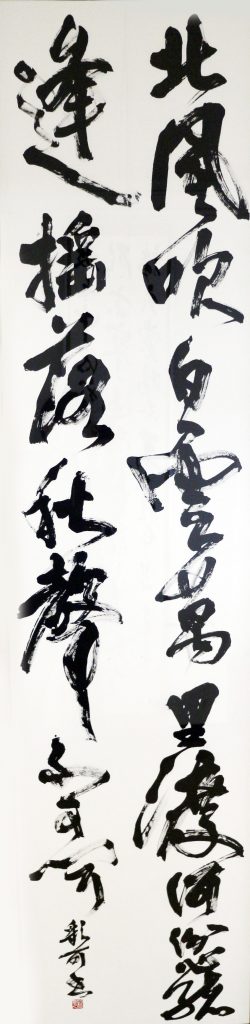 北風吹白雲萬里渡河汾心緒
逢搖落秋聲不可聞